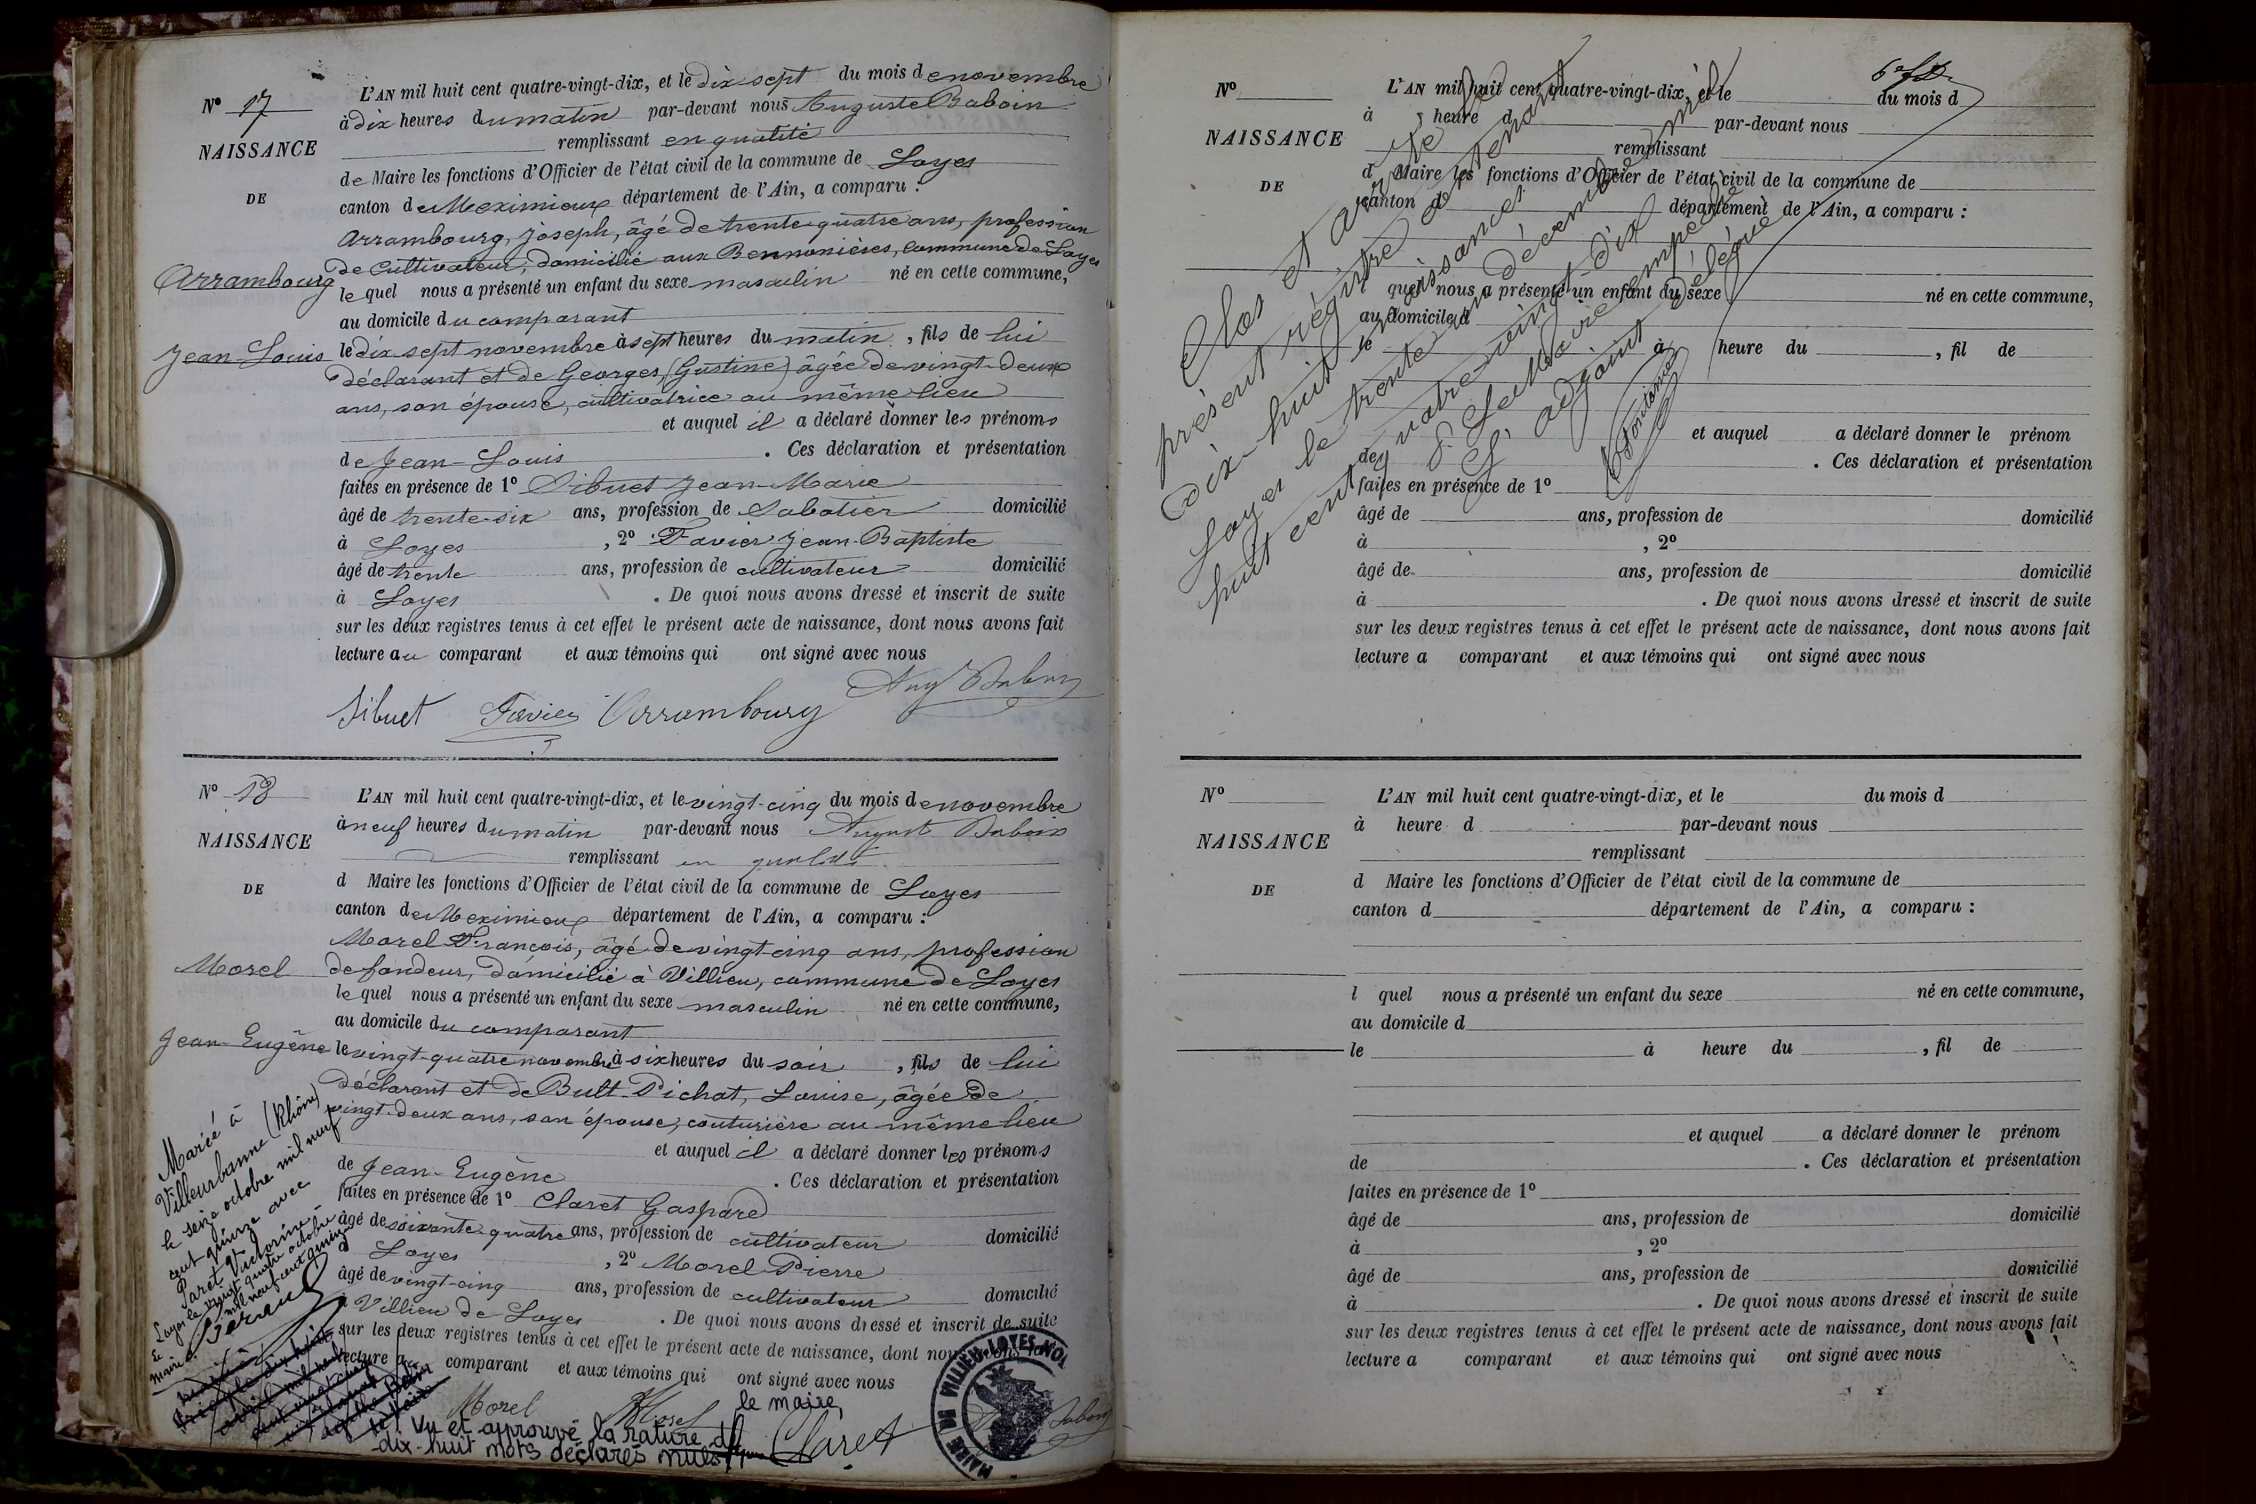 N° 17
NAISSANCE
DE
Arrambourg
Jean-Louis
L'AN mil huit cent quatre-vingt-dix, et le dix sept du mois de novembre
à dix heures du matin par-devant nous Auguste Baboin
remplissant en qualité
de Maire les fonctions d'Officier de l'état civil de la commune de Loyes
canton de Meximieux département de l'Ain, a comparu :
Arrambourg, Joseph, âgé de trente quatre ans, profession
de Cultivateur, domicilié aux Bennonières, commune de Loyes
le quel nous a présenté un enfant du sexe masculin né en cette commune,
au domicile du comparant
le dix sept novembre à sept heures du matin, fils de lui
déclarant et de Georges, (Gustine) âgée de vingt-deux
ans, son épouse, cultivatrice au même lieu
et auquel il a déclaré donner les prénoms
de Jean-Louis . Ces déclaration et présentation
faites en présence de 1° Sibuet Jean-Marie
âgé de trente-six ans, profession de Sabotier domicilié
à Loyes , 2° Favier Jean-Baptiste
âgé de trente ans, profession de cultivateur domicilié
à Loyes . De quoi nous avons dressé et inscrit de suite
sur les deux registres tenus à cet effet le présent acte de naissance, dont nous avons fait
lecture au comparant et aux témoins qui ont signé avec nous
Sibuet Favier Arrambourg Aug Baboin
N° 18
NAISSANCE
DE
Morel
Jean-Eugène
L'AN mil huit cent quatre-vingt-dix, et le vingt-cinq du mois de novembre
à neuf heures du matin par-devant nous August Baboin
remplissant en qualité
d Maire les fonctions d'Officier de l'état civil de la commune de Loyes
canton de Meximieux département de l'Ain, a comparu :
Morel François, âgé de vingt-cinq ans, profession
de fondeur, domicilié à Villieu, commune de Loyes
le quel nous a présenté un enfant du sexe masculin né en cette commune,
au domicile du comparant
le vingt-quatre novembre à six heures du soir , fils de lui
déclarant et de Bult-Pichat, Louise, âgée de
vingt-deux ans, son épouse, couturière au même lieu
et auquel il a déclaré donner les prénoms
de Jean-Eugène . Ces déclaration et présentation
faites en présence de 1° Claret Gaspard
âgé de soixante quatre ans, profession de cultivateur domicilié
à Loyes , 2° Morel Pierre
âgé de vingt-cinq ans, profession de cultivateur domicilié
à Villieu de Loyes . De quoi nous avons dressé et inscrit de suite
sur les deux registres tenus à cet effet le présent acte de naissance, dont nous avons fait
lecture au comparant et aux témoins qui ont signé avec nous
Morel Morel Claret
Marié à
Villeurbanne (Rhône)
le seize octobre mil neuf
cent quinze avec
Paret Victorine
Loyes le vingt quatre octobre
mil neuf cent quinze
Le Maire
Vu et approuvé la rature de
dix-huit mots déclarés nuls
le maire,
MAIRIE DE VILLIEU-LOYES-MOL
N°
NAISSANCE
DE
L'AN mil huit cent quatre-vingt-dix, et le du mois d
à heure d par-devant nous
remplissant
d Maire les fonctions d'Officier de l'état civil de la commune de
canton d département de l'Ain, a comparu :
l quel nous a présenté un enfant du sexe né en cette commune,
au domicile d
le à heure du , fil de
et auquel a déclaré donner le prénom
de . Ces déclaration et présentation
faites en présence de 1°
âgé de ans, profession de domicilié
à , 2°
âgé de ans, profession de domicilié
à . De quoi nous avons dressé et inscrit de suite
sur les deux registres tenus à cet effet le présent acte de naissance, dont nous avons fait
lecture a comparant et aux témoins qui ont signé avec nous
Clos et arrêté le
présent régistre contenant
dix-huit naissances
Loyes le trente un décembre mil
huit cent quatre-vingt-dix
P. Le Maire empêché
L'adjoint délégué
N°
NAISSANCE
DE
L'AN mil huit cent quatre-vingt-dix, et le du mois d
à heure d par-devant nous
remplissant
d Maire les fonctions d'Officier de l'état civil de la commune de
canton d département de l'Ain, a comparu :
l quel nous a présenté un enfant du sexe né en cette commune,
au domicile d
le à heure du , fil de
et auquel a déclaré donner le prénom
de . Ces déclaration et présentation
faites en présence de 1°
âgé de ans, profession de domicilié
à , 2°
âgé de ans, profession de domicilié
à . De quoi nous avons dressé et inscrit de suite
sur les deux registres tenus à cet effet le présent acte de naissance, dont nous avons fait
lecture a comparant et aux témoins qui ont signé avec nous